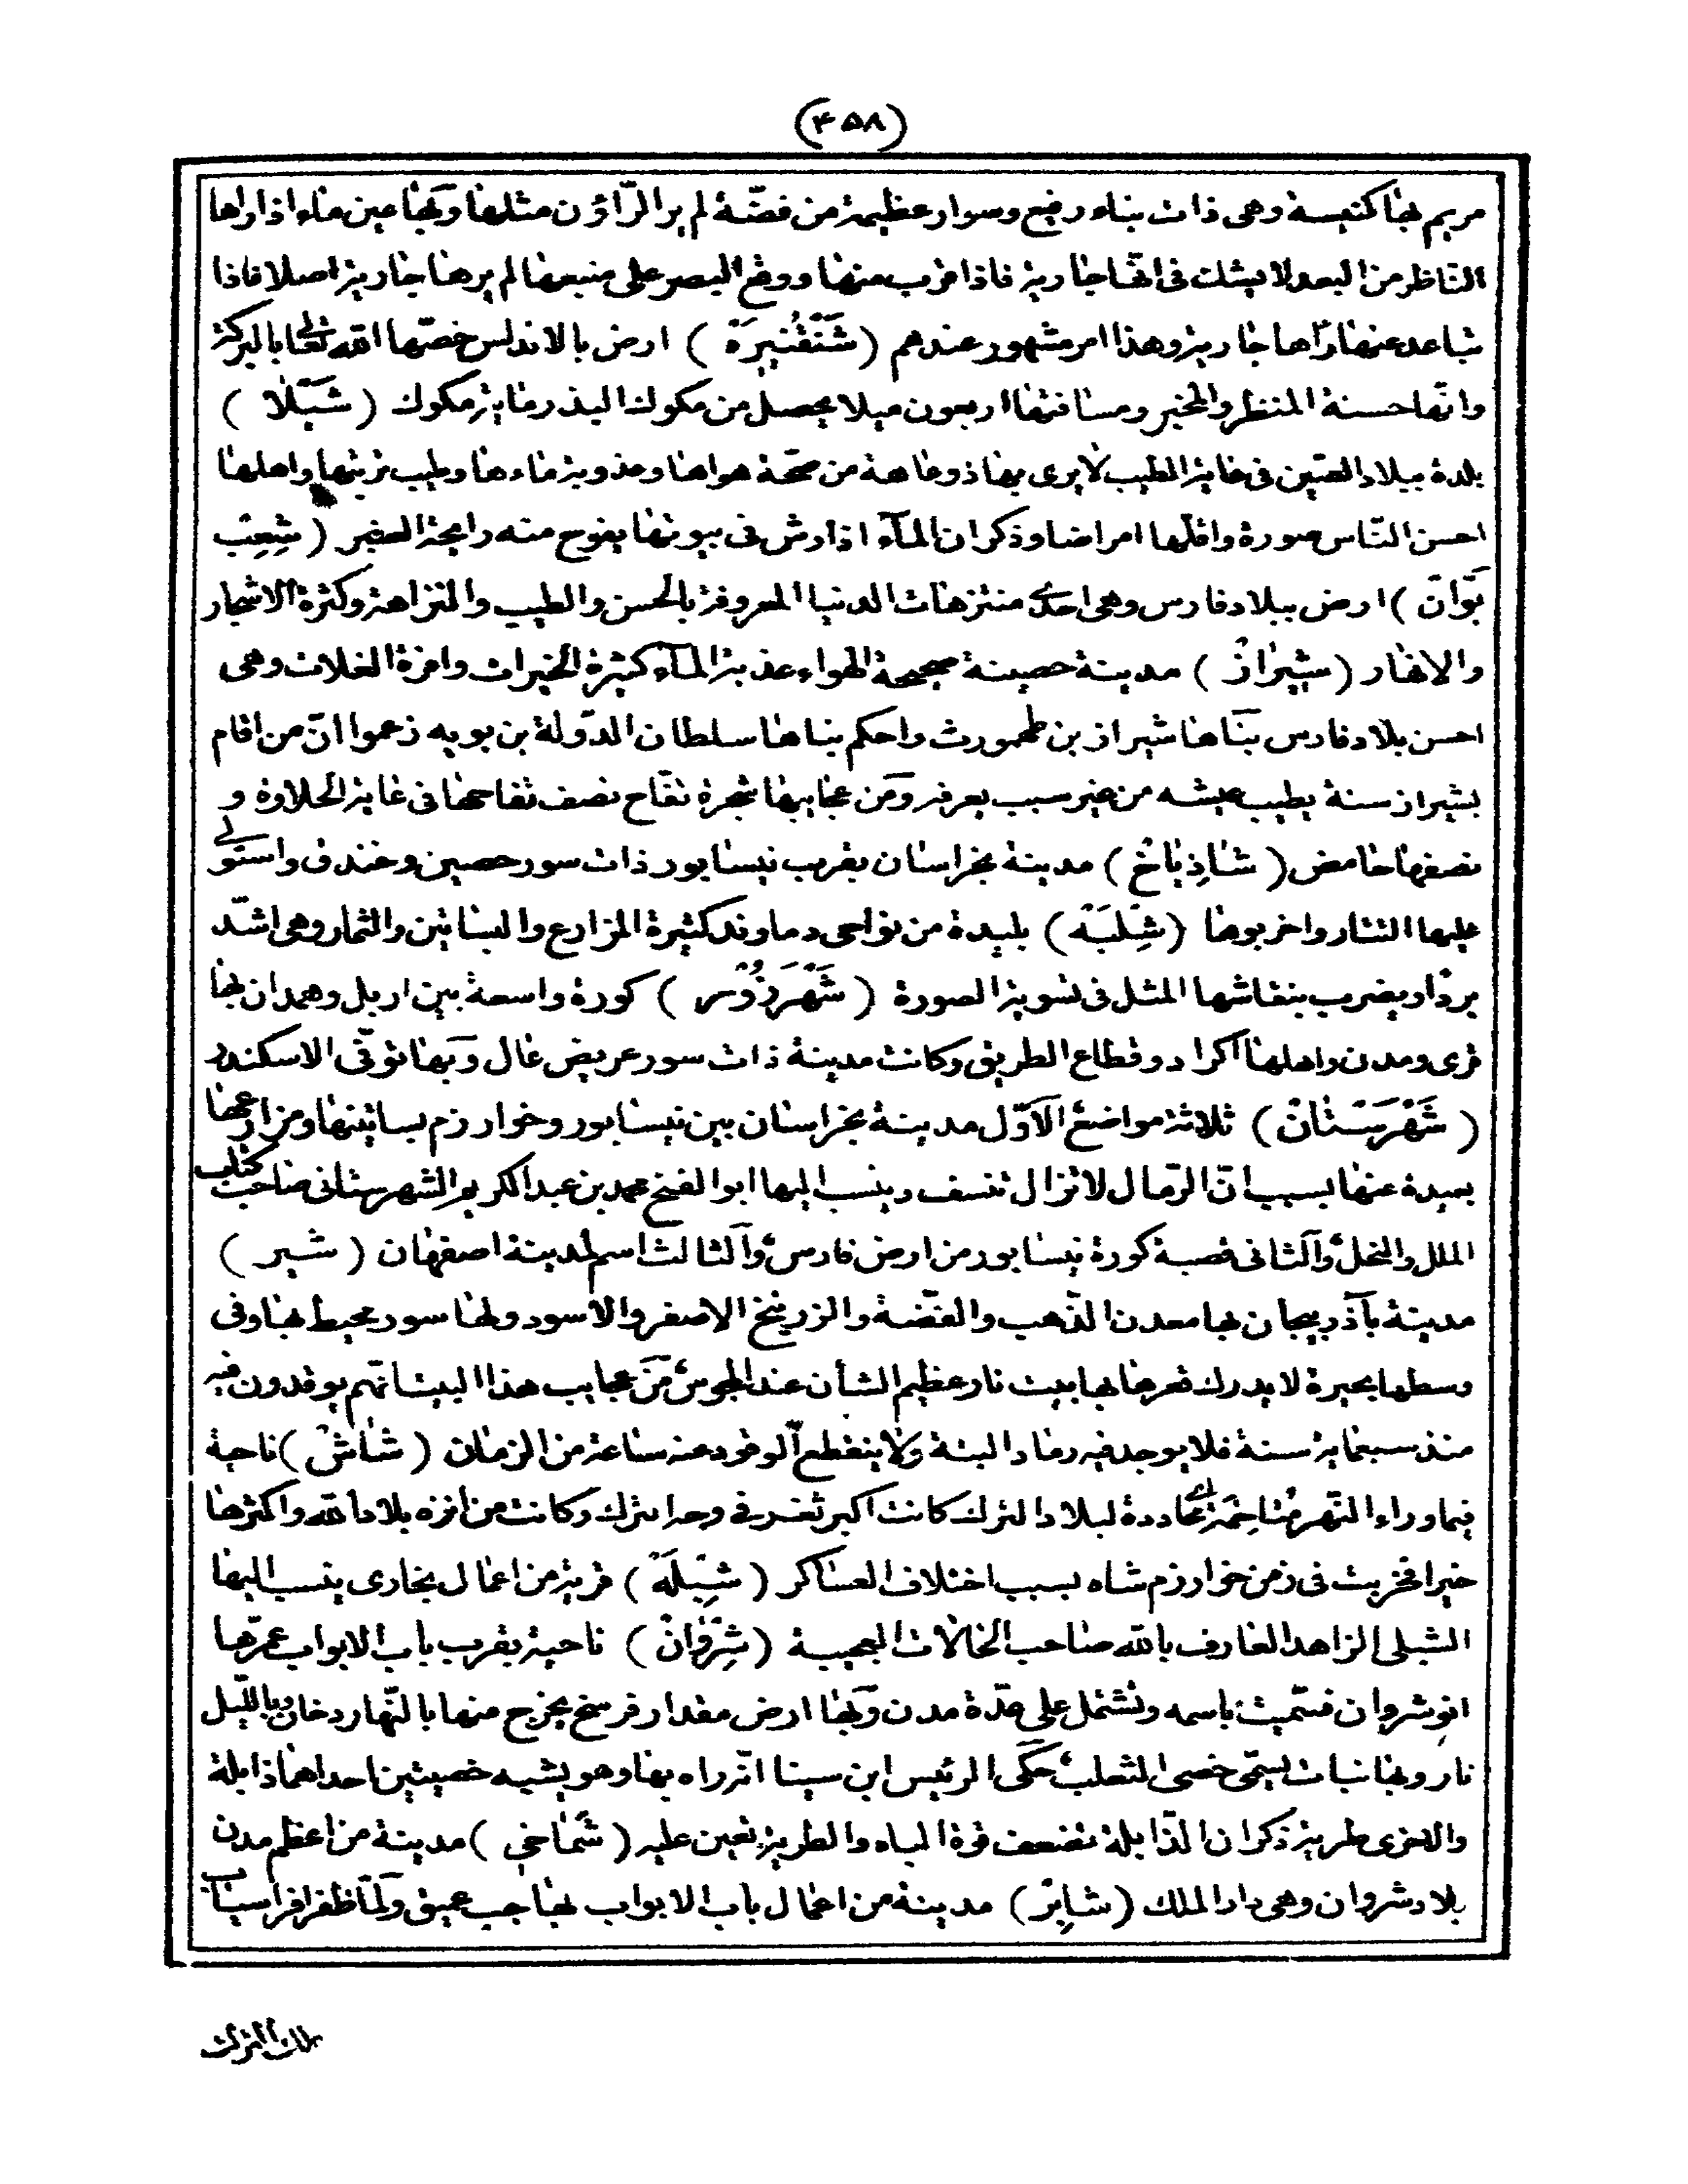 (٤٥٨)
مريم بها كنيسة وهى ذات بناء رفيع وسوار عظيمة من فضّة لم ير الرّاؤن مثلها وبها عين ماء اذا راها
النّاظر من البعد لا يشك فى انّها جارية فاذا قرب منها ووقع البصر على منبعها لم يرها جارية اصلا فاذا
تباعد عنها رآها جارية وهذا امر مشهور عندهم (شَنَقْنِيرَة) ارض بالاندلس خصّها الله تعالى بالبركة
وانّها حسنة المنظر والمخبر ومسافتها اربعون ميلا يحصل من مكوك البذر مائة مكوك (شَيَلا)
بلدة ببلاد الصّين فى غاية الطيب لا يرى بها ذو عاهة من صحّة هواها وعذوبة ماءها وطيب تربتها واهلها
احسن النّاس صورة واقلّها امراضا وذكر ان المآء اذا رش فى بيوتها يفوح منه رايحة العنبر (شِعِب
بَوّان) ارض ببلاد فارس وهى احدى منتزهات الدنيا المعروفة بالحسن والطيب والنزاهة وكثرة الاشجار
والانهار (شِيرَاز) مدينة حصينة صحيحة الهواء عذبة المآء كثيرة الخيرات وافرة الغلات وهى
احسن بلاد فارس بنَاها شيراز بن طهمورث واحكم بناها سلطان الدّولة بن بويه زعموا انّ من اقام
بشيراز سنة يطيب عيشه من غير سبب يعرفه ومن عجايبها شجرة تفّاح نصف تفاحها فى غاية الحلاوة و
نصفها حامض (شاذِياخ) مدينة بخراسان بقرب نيسابور ذات سور حصين وخندق واستولى
عليها التتار واخربوها (شِلبَة) بليدة من نواحى دماوند كثيرة المزارع والبساتين والثمار وهى اشدّ
بردا ويضرب بنقاشها المثل فى تسوية الصورة (شَهْرَزُور) كورة واسعة بين اربل وهمدان بها
قرى ومدن واهلها اكراد وقطاع الطريق وكانت مدينة ذات سور عريض عال وبها توفّى الاسكندر
(شَهْرَسْتان) ثلاثة مواضع الاَوّل مدينة بخراسان بين نيسابور وخوارزم بساتينها ومزارعها
بعيدة عنها بسبب انّ الرّمال لا تزال تنسف وينسب اليها ابو الفتح محمد بن عبد الكريم الشهرستانى صاحب كتاب
الملل والنحل والثانى قصبة كورة نيسابور من ارض فارس والثالث اسم لمدينة اصفهان (شير)
مدينة بآذربيجان بها معدن الذّهب والفضّة والزرنيخ الاصفر والاسود ولها سور محيط بها وفى
وسطها بحيرة لا يدرك قعرها بها بيت نار عظيم الشأن عند المجوس مّن عجايب هذا البيت انّهم يوقدون فيه
منذ سبعماية سنة فلا يوجد فيه رماد البتة ولا ينقطع الوقود عنه ساعة من الزمان (شاش) ناحية
فيما وراء النّهر متاخمة اى محاددة لبلاد الترك كانت اكبر ثغر فى وجه الترك وكانت من انزه بلاد الله واكثرها
خيرا فخربت فى زمن خوارزم شاه بسبب اختلاف العساكر (شِبلَة) قرية من اعمال بخارى ينسب اليها
الشبلى الزاهد العارف بالله صاحب الحالات العجيبة (شِرْوان) ناحية بقرب باب الابواب عمرّها
انوشروان فسّميت باسمه وتشتمل على عدّة مدن وبها ارض مقدار فرسخ يخرج منها بالنّهار دخان وباللّيل
نار وبها نبات يسمّى خصى الثعلب حَكى الرئيس ابن سينا انّه راه بها وهو يشبه خصيتين احداهما ذابلة
والاخرى طرية ذكر ان الذّابلة تضعف قوة الباه والطرية تعين عليه (شَماخى) مدينة من اعظم مدن
بلاد شروان وهى دار الملك (شابِر) مدينة من اعمال باب الابواب بها جب عميق ولمّا ظفر افراسياب
ملك الترك